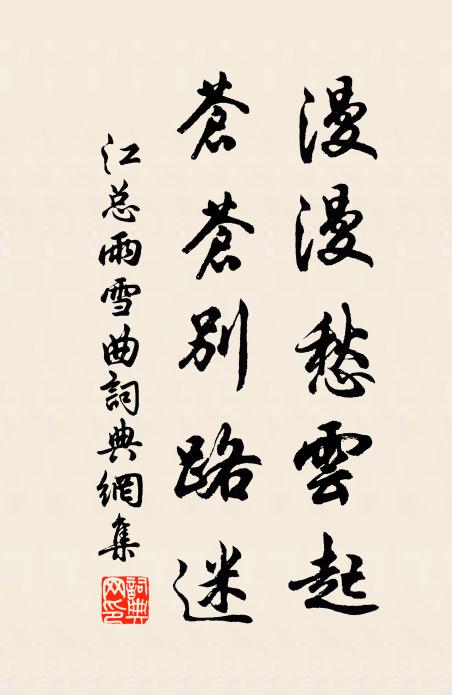 漫漫愁雲起
蒼蒼別路迷
江总雨雪曲詞典網集
詞典網印